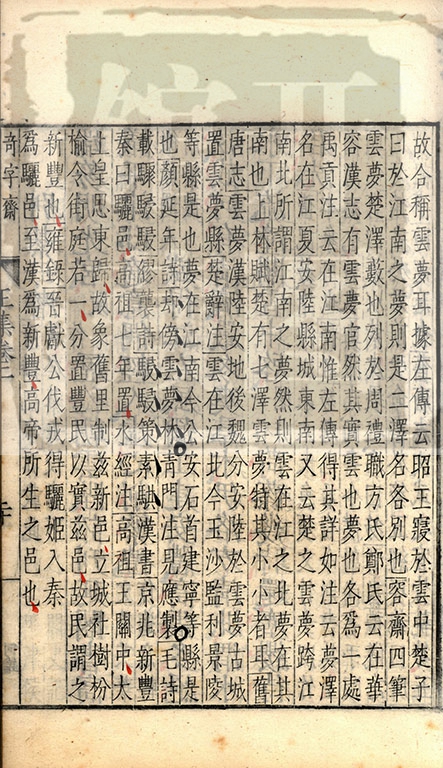 故合稱雲夢耳據左傳云昭王寢於雲中楚子
曰於江南之夢則是二澤名各別也容齋四筆
雲夢楚澤藪也列於周禮職方氏鄭氏云在華
容漢志有雲夢官然其實雲也夢也各為一處
禹貢注云在江南惟左傳得其詳如注云夢澤
名在江夏安陸縣城東南又云楚之雲夢跨江
南北所謂江南之夢然則雲在江之北夢在其
南也上林賦楚有七澤雲夢特其小小者耳舊
唐志雲夢漢陸安地後魏分安陸於雲夢古城
置雲夢縣楚辭注雲在江北今玉沙監利景陵
等縣是也夢在江南今公安石首建寧等縣是
也顏延年詩却傍雲夢林青門注見應製毛詩
載驟駸駸繆襲詩駸駸策素騏漢書京兆新豐
秦曰驪邑高祖七年置水經注高祖王關中太
上皇思東歸故象舊里制茲新邑立城社樹枌
榆令街庭若一分置豐民以實茲邑故民謂之
新豐也雍錄晉獻公伐戎得驪姬入秦
為驪邑至漢為新豐高帝所生之邑也
奇字齋